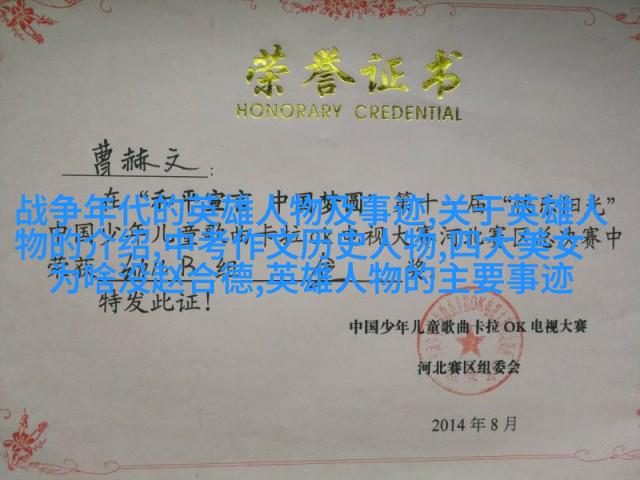 荣誉证书
HONORARY CREDENTIAL
曹赫文:
战争年代的英雄人物及事迹,关于英雄人
物的介绍,中考作文历史人物,四大美女
为啥没赵合德,英雄人物的主要事迹
中国少年儿童歌曲卡拉OK电视大赛河北赛区总决赛中
特发此证!
中国少年儿童歌曲卡拉OK电视大赛
河北赛区组委会
2014年8月